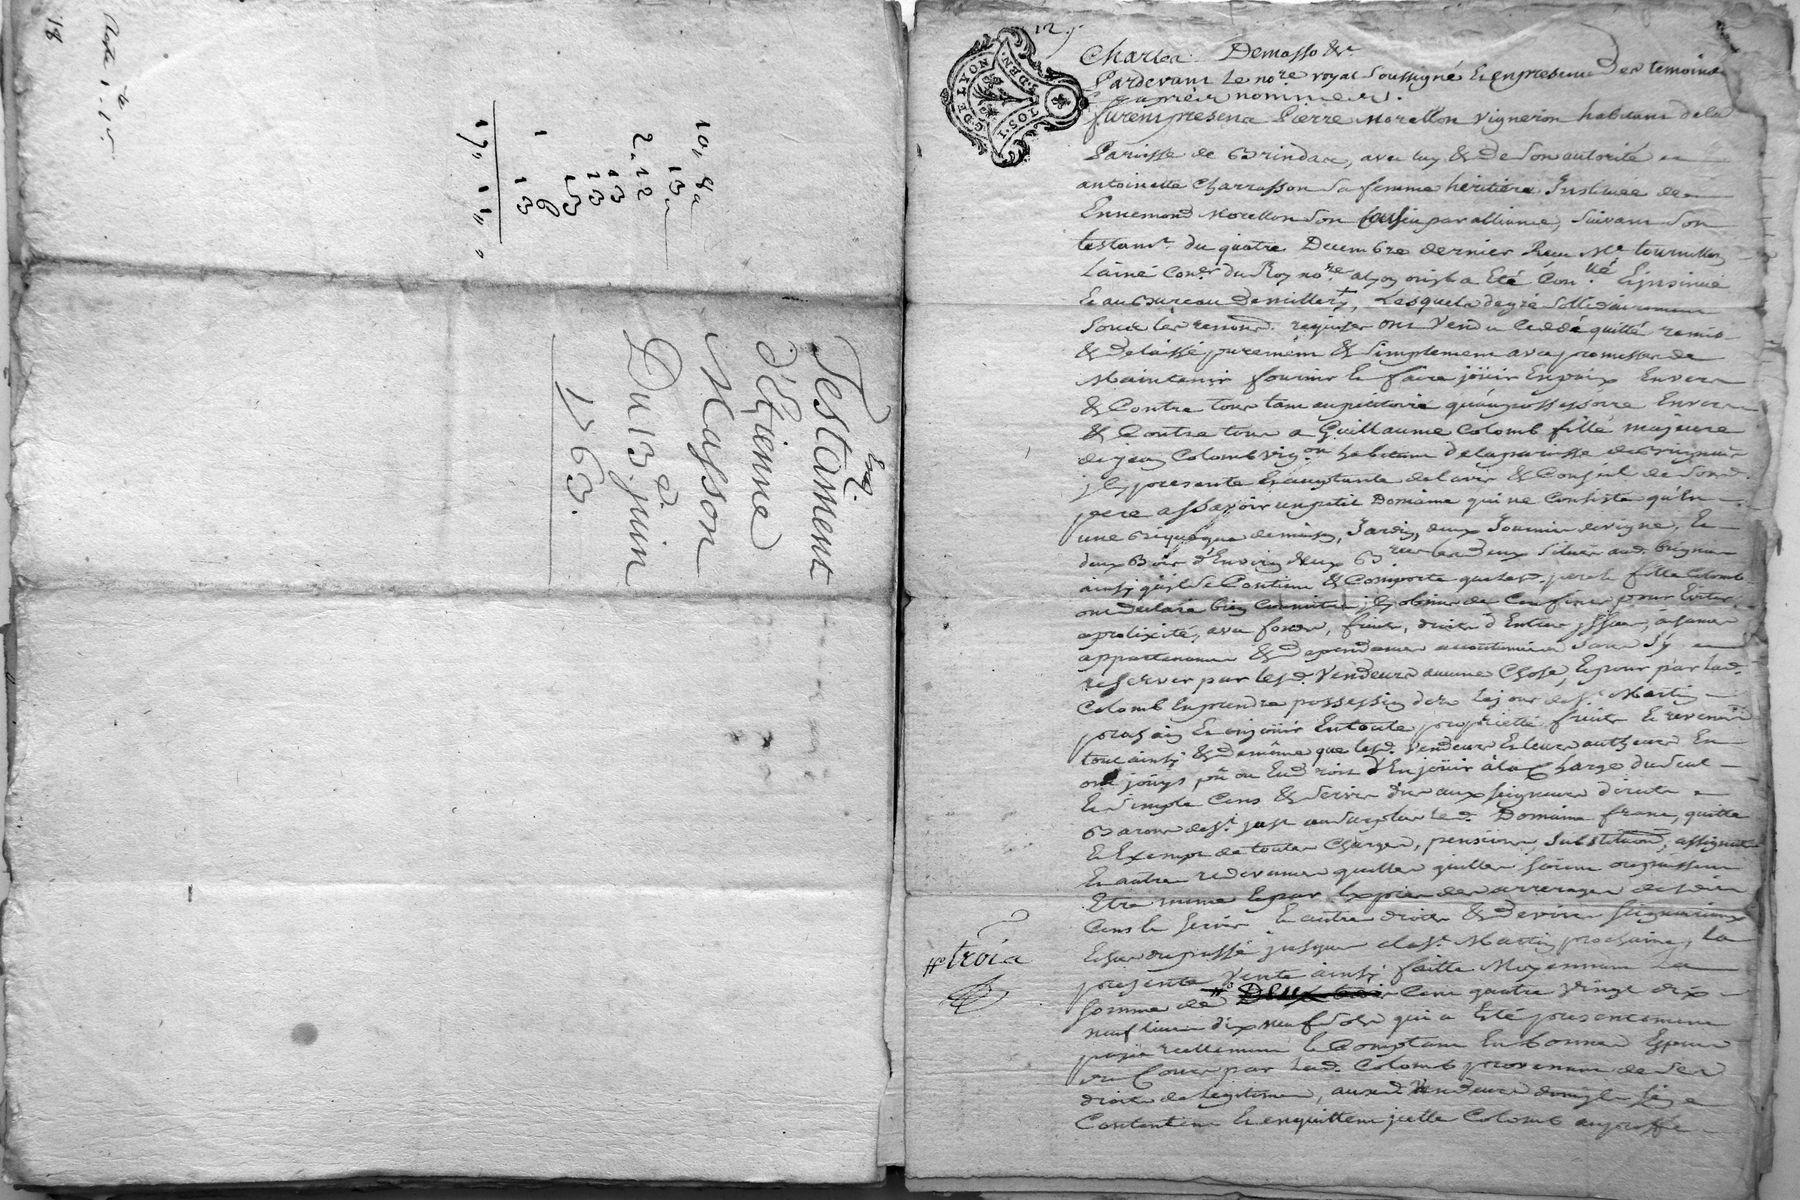 18
Reste 1. 15
10, 8a
13a
2.12
13
13
53
1 6
13
19, 1, 0
Exp.
Testament
d'Etienne
Masson
Du 13.e juin
1763.
G. DE LYON
2.S. DEN.
TOS. I
12
Charles Demasso &c
Pardevant le no.re royal soussigné & en presence des temoins
cy apprès nommes.
furent presens Pierre Morellon vigneron habitant de la
Paroisse de Brindas, avec luy & de son autorité
antoinette Charrasson sa femme héritière Instituée de
Ennemond Morellon son cousin par alliance, suivant son
testam.t du quatre Decembre dernier Recu M.e tournillon
Laine Con.er du Roy no.re a Lyon ou il a Eté Con.llé & insinué
& au Bureau de millery, Lesquels de gré sollidairement
sous les renond. requises ont vendu Ceddé quitté remis
& delaissé purement & simplement avec promesse de
Maintenir fournir & faire joüir En paix Envers
& Contre tous tant au petitoire qu'au possessoire Envers
& Contre tous a Guillaume Colomb fille majeure
de jean Colomb vig.on habitant de la paroisse de brignais
icy presente & acceptante de l'avis & Conseil de sond.
pere assavoir un petit Domaine qui ne Consiste qu'En
une bicoque de maison, Jardin, deux Journées de vigne, &
deux Bois d'Environ deux Situés aud. brignais
ainsi qu'il se Contient & Comporte que lesd. pere & fille Colomb
ont declaré bien Connoitre, icy obmis de Confiner pour Eviter
a prolixité, avec fonds, fruits, droits d'Entrée issues, aisances
appartenances & dependances accoutumées Sans s'y en
reserver par lesd. Vendeurs aucune Chose, & pour par lad.
Colomb En prendre possession des le jour de S.t Martin
prochain & en joüir En toute proprieté fruits & revenus
tout ainsi & de même que lesd. Vendeurs & leurs autheurs En
ont joüys pû ou Eu droit d'En joüir a la Charge du seul
& simple Cens & servis dus aux seigneurs directs
Barons de S.t just au surplus led. Domaine franc, quitte
& Exempt de toutes Charges, pensions, substitution, assignats
& autres redevances quelles qu'elles soient ou puissent
Etre même & par Exprès des arrerages desdits
Cens & servis & autres droits & devoirs seigneuriaux
& ce du passé jusques a la S.t Martin prochaine, La
presente Vente ainsi faitte Moyennant La
#trois
somme de # Cent quatre vingt dix
neuf livres dix neuf sols qui a Eté presentement
payée reellement & Comptant En bonnes Especes
de Cours par lad. Colomb provenant de ses
droits de Legitime, auxd. Vendeurs dont ils s'en
Contentent & en quittent icelle Colomb